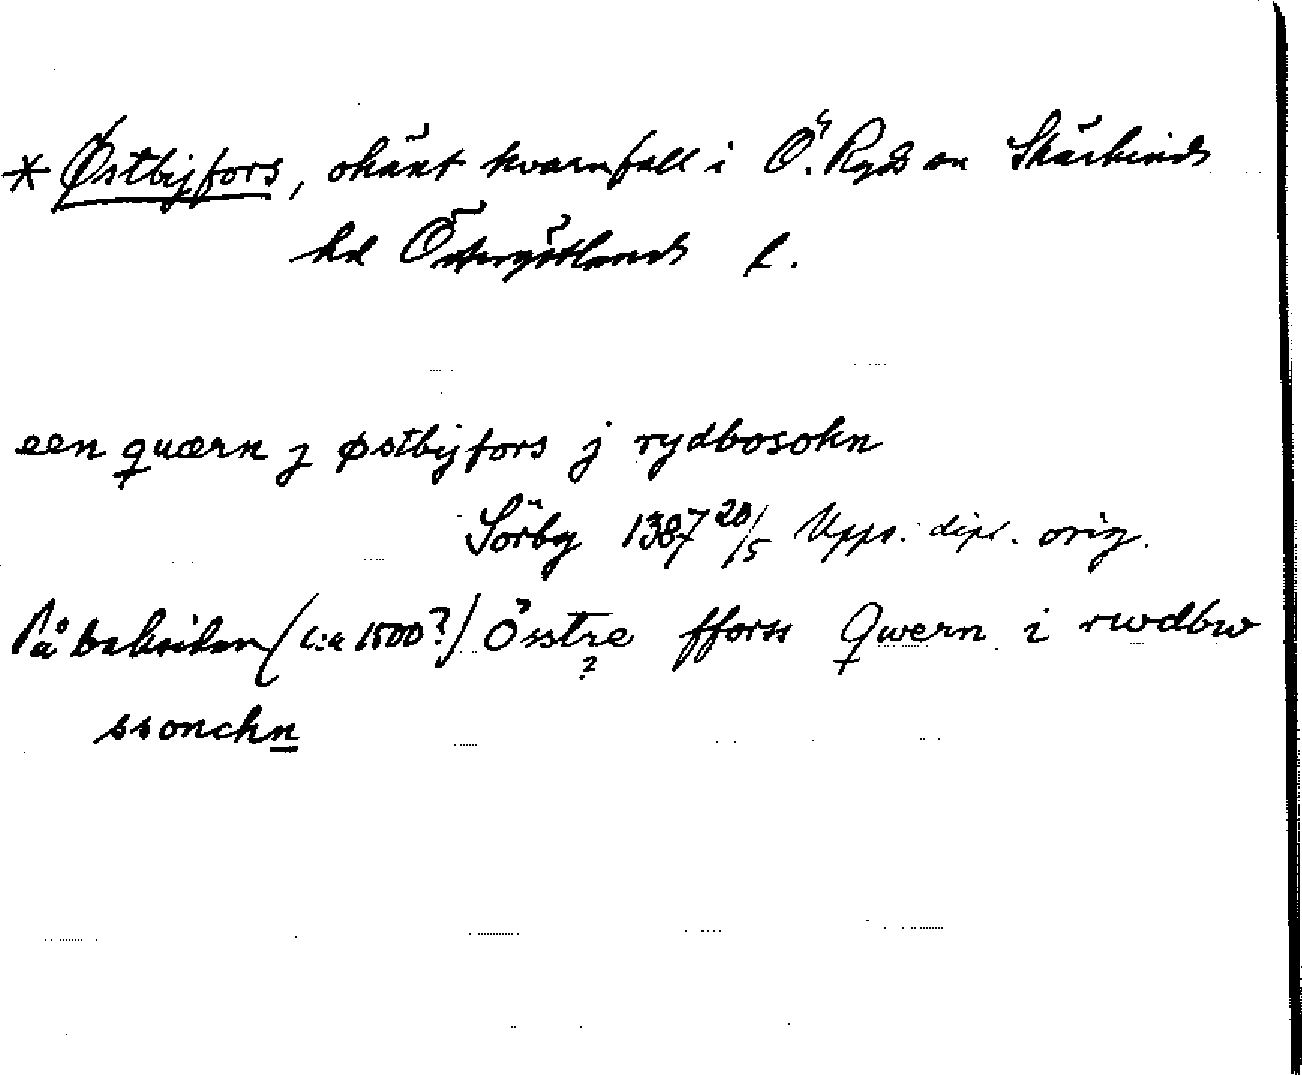 * Østbijfors, okänt kvarnfall i Ö. Ryds sn Skärkinds
hd Östergötlands l.
een quærn j østbijfors j rydbosokn
Sörby 1387 20/5 Upps. dipl. orig.
På baksidan (c:a 1500?) Össtre fforss Qwern i rwdbw
?
ssonchn